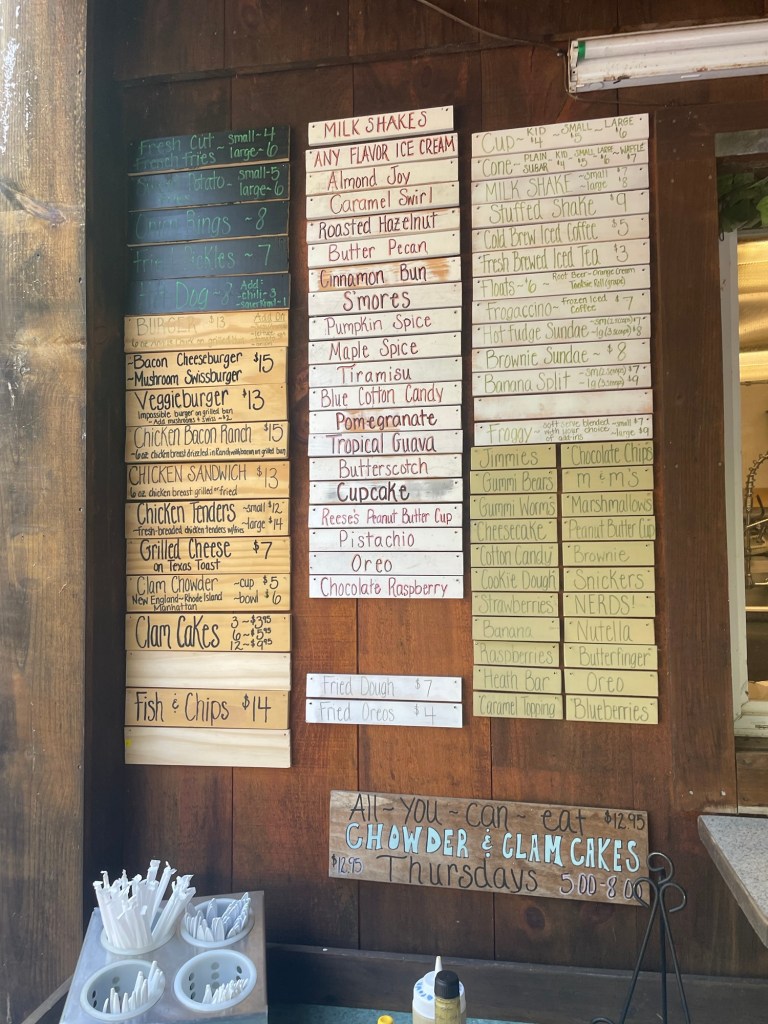 Fresh Cut ~ small-4
French Fries ~ large-6
Potato - small-5
large-6
Rings ~ 8
~ 7
Dog ~ 8 Add:
-chili-3
BURGER $13 Add On
-Bacon Cheeseburger $15
-Mushroom Swissburger
Veggieburger $13
Impossible burger on grilled bun
~Add mushrooms & Swiss ~ $2
Chicken Bacon Ranch $15
6oz chicken breast drizzled in Ranch with bacon on grilled bun
CHICKEN SANDWICH $13
6 oz chicken breast grilled or fried
Chicken Tenders -small $12
~fresh-breaded chicken tenders w/fries -large $14
Grilled Cheese $7
on Texas Toast
Clam Chowder -cup $5
New England~Rhode Island -bowl $6
Manhattan
Clam Cakes 3~$3.95
6~$5.95
12~$9.95
Fish & Chips $14
MILK SHAKES
ANY FLAVOR ICE CREAM
Almond Joy
Caramel Swirl
Roasted Hazelnut
Butter Pecan
Cinnamon Bun
S'mores
Pumpkin Spice
Maple Spice
Tiramisu
Blue Cotton Candy
Pomegranate
Tropical Guava
Butterscotch
Cupcake
Reese's Peanut Butter Cup
Pistachio
Oreo
Chocolate Raspberry
Fried Dough $7
Fried Oreos $4
Cup - KID $4 - SMALL $5 - LARGE $6
Cone - PLAIN SUGAR KID $4 SMALL $5 LARGE $6 WAFFLE $7
MILK SHAKE -small $7
-large $8
Stuffed Shake $9
Cold Brew Iced Coffee $5
Fresh Brewed Iced Tea $3
Floats ~ $6 Root Beer-Orange Cream
Tootsie Roll (grape)
Frogaccino ~ Frozen Iced Coffee $7
Hot fudge Sundae -sm (2 scoops) $7
-lg (3 scoops) $8
Brownie Sundae ~ $8
Banana Split -sm (2 scoops) $7
-lg (3 scoops) $9
Froggy ~ soft serve blended with your choice of add-ins -small $7
-large $9
Jimmies
Gummi Bears
Gummi Worms
Cheesecake
Cotton Candy
Cookie Dough
Strawberries
Banana
Raspberries
Heath Bar
Caramel Topping
Chocolate Chips
m & m's
Marshmallows
Peanut Butter Cup
Brownie
Snickers
NERDS!
Nutella
Butterfinger
Oreo
Blueberries
All~you~can~eat $12.95
CHOWDER & CLAM CAKES
$12.95 Thursdays 5:00-8:00